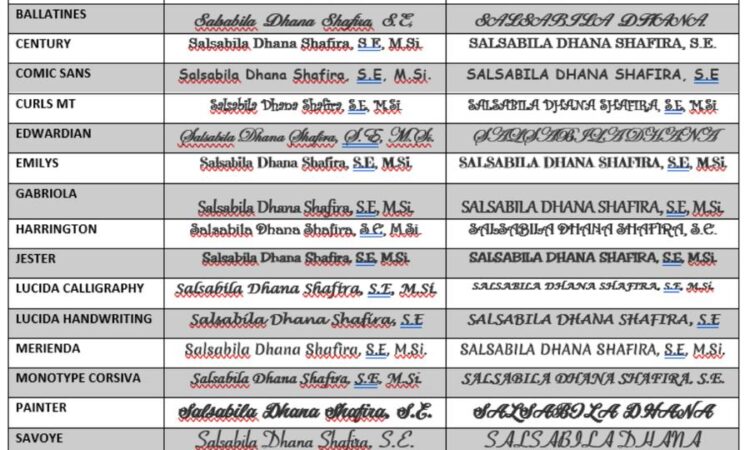 BALLATINES Salsabila Dhana Shafira, S.E, SALSABILA DHANA
CENTURY Salsabila Dhana Shafira, S.E, M.Si. SALSABILA DHANA SHAFIRA, S.E.
COMIC SANS Salsabila Dhana Shafira, S.E, M.Si. SALSABILA DHANA SHAFIRA, S.E
CURLS MT Salsabila Dhana Shafira, S.E, M.Si. SALSABILA DHANA SHAFIRA, S.E, M.Si.
EDWARDIAN Salsabila Dhana Shafira, S.E, M.Si. SALSABILA DHANA
EMILYS Salsabila Dhana Shafira, S.E, M.Si. SALSABILA DHANA SHAFIRA, S.E, M.Si.
GABRIOLA Salsabila Dhana Shafira, S.E, M.Si. SALSABILA DHANA SHAFIRA, S.E, M.Si.
HARRINGTON Salsabila Dhana Shafira, S.E, M.Si. SALSABILA DHANA SHAFIRA, S.E.
JESTER Salsabila Dhana Shafira, S.E, M.Si. SALSABILA DHANA SHAFIRA, S.E, M.Si.
LUCIDA CALLIGRAPHY Salsabila Dhana Shafira, S.E, M.Si. SALSABILA DHANA SHAFIRA, S.E, M.Si.
LUCIDA HANDWRITING Salsabila Dhana Shafira, S.E SALSABILA DHANA SHAFIRA, S.E
MERIENDA Salsabila Dhana Shafira, S.E, M.Si. SALSABILA DHANA SHAFIRA, S.E, M.Si.
MONOTYPE CORSIVA Salsabila Dhana Shafira, S.E, M.Si. SALSABILA DHANA SHAFIRA, S.E.
PAINTER Salsabila Dhana Shafira, S.E. SALSABILA DHANA
SAVOYE Salsabila Dhana Shafira, S.E. SALSABILA DHANA